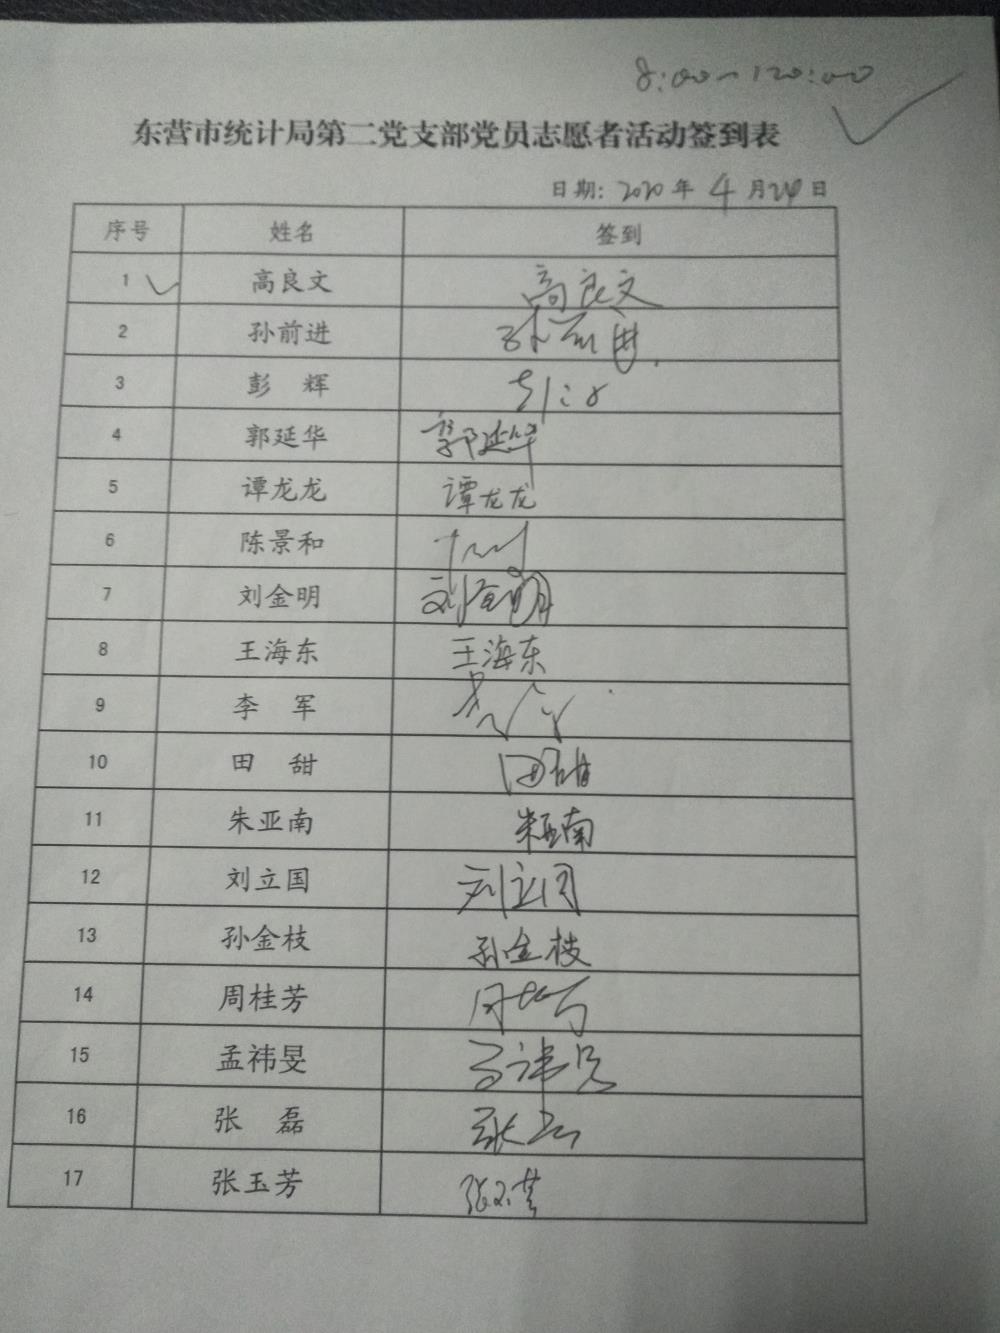 8:00-120:00
东营市统计局第二党支部党员志愿者活动签到表
日期: 2020 年 4 月 24 日
序号 姓名 签到
1 高良文 高良文
2 孙前进 孙前进
3 彭 辉
4 郭延华 郭延华
5 谭龙龙 谭龙龙
6 陈景和
7 刘金明 刘金明
8 王海东 王海东
9 李 军
10 田 甜 田甜
11 朱亚南 朱亚南
12 刘立国 刘立国
13 孙金枝 孙金枝
14 周桂芳 周桂芳
15 孟祎旻
16 张 磊 张磊
17 张玉芳 张玉芳